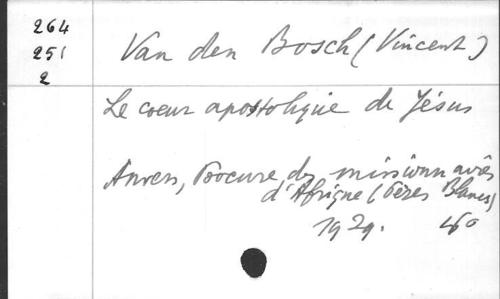 264
251
2
Van den Bosch (Vincent)
Le coeur apostolique de Jésus
Anvers, Procure des missionnaires
d'Afrique (Pères Blancs)
1929. in-16°